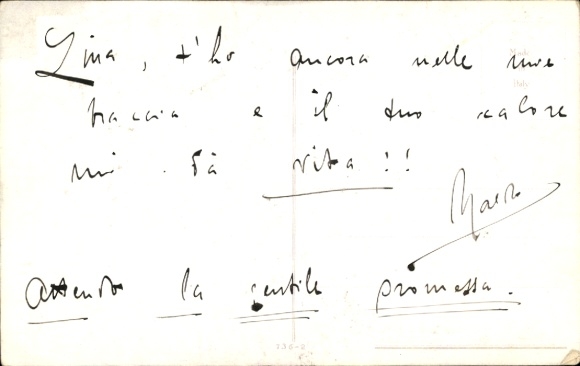 Lina, t'ho ancora nelle mie
braccia e il tuo calore
mi dà vita!!
Attendo la gentile promessa.
132-2